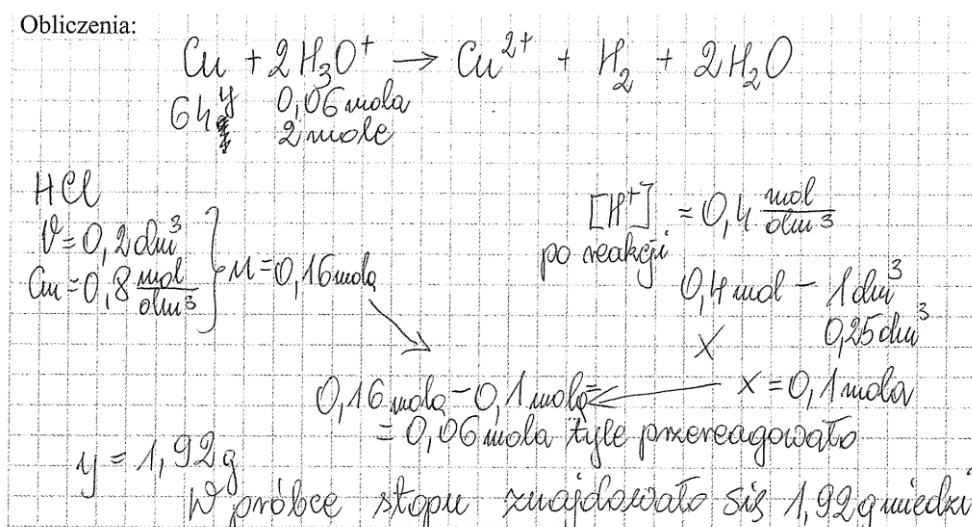 Obliczenia:
Cu + 2H₃O⁺ → Cu²⁺ + H₂ + 2H₂O
y 0,06 mola
64g 2 mole
HCl
V = 0,2 dm³
Cm = 0,8 mol/dm³ } n = 0,16 mola
[H⁺] po reakcji = 0,4 mol/dm³
0,4 mol – 1 dm³
X 0,25 dm³
x = 0,1 mola
0,16 mola – 0,1 mola =
= 0,06 mola tyle przereagowało
y = 1,92g
W próbce stopu znajdowało się 1,92 g miedzi